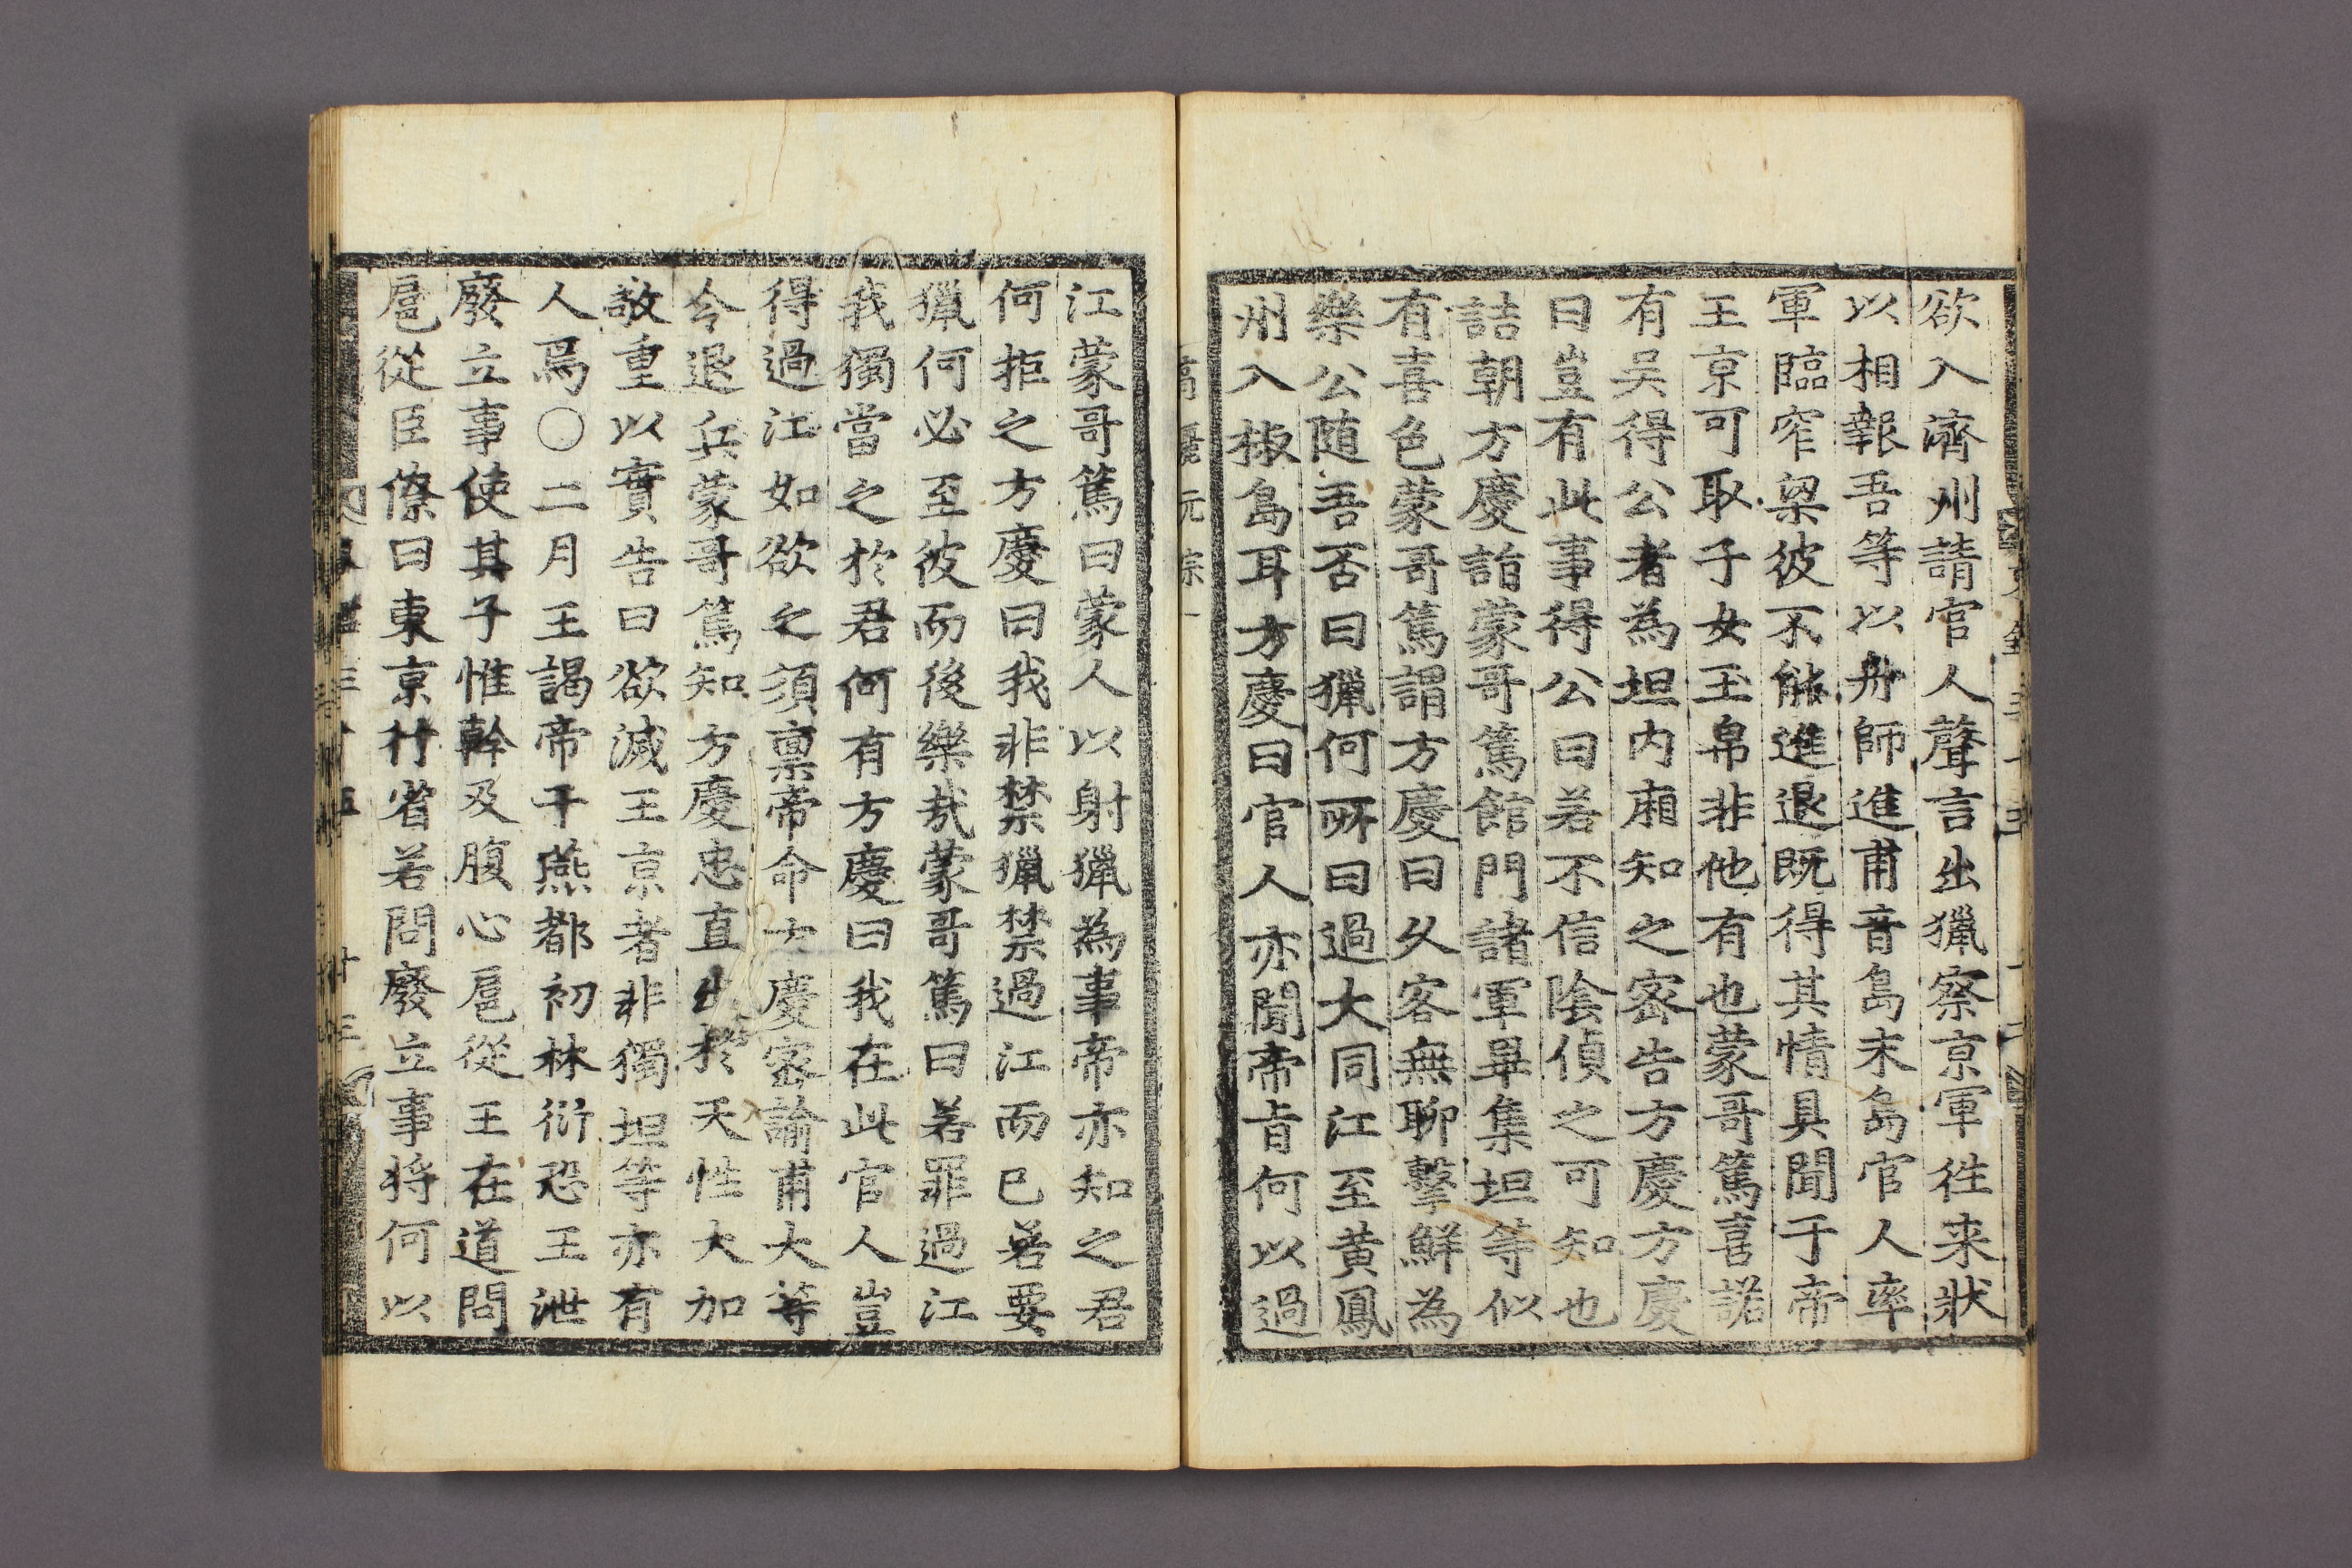 欲入濟州請官人聲言出獵察京軍往来狀
以相報吾等以舟師進甫音島末島官人率
軍臨窄梁彼不能進退旣得其情具聞于帝
王京可取子女玉帛非他有也蒙哥篤喜諾
有吳得公者為坦内廂知之密告方慶方慶
曰豈有此事得公曰若不信陰偵之可知也
詰朝方慶詣蒙哥篤館門諸軍畢集坦等似
有喜色蒙哥篤謂方慶曰久客無聊擊鮮為
樂公随吾否曰獵何所曰過大同江至黄鳳
州入椒島耳方慶曰官人亦聞帝旨何以過
高麗元宗一
江蒙哥篤曰蒙人以射獵為事帝亦知之君
何拒之方慶曰我非禁獵禁過江而已若要
獵何必至彼而後樂㢤蒙哥篤曰若罪過江
我獨當之於君何有方慶曰我在此官人豈
得過江如欲之須禀帝命方慶密諭甫大等
令退兵蒙哥篤知方慶忠直出於天性大加
敬重以實告曰欲滅王京者非獨坦等亦有
人焉〇二月王謁帝于燕都初林衍恐王泄
廢立事使其子惟幹及腹心扈從王在道問
扈從臣僚曰東京行省若問廢立事將何以